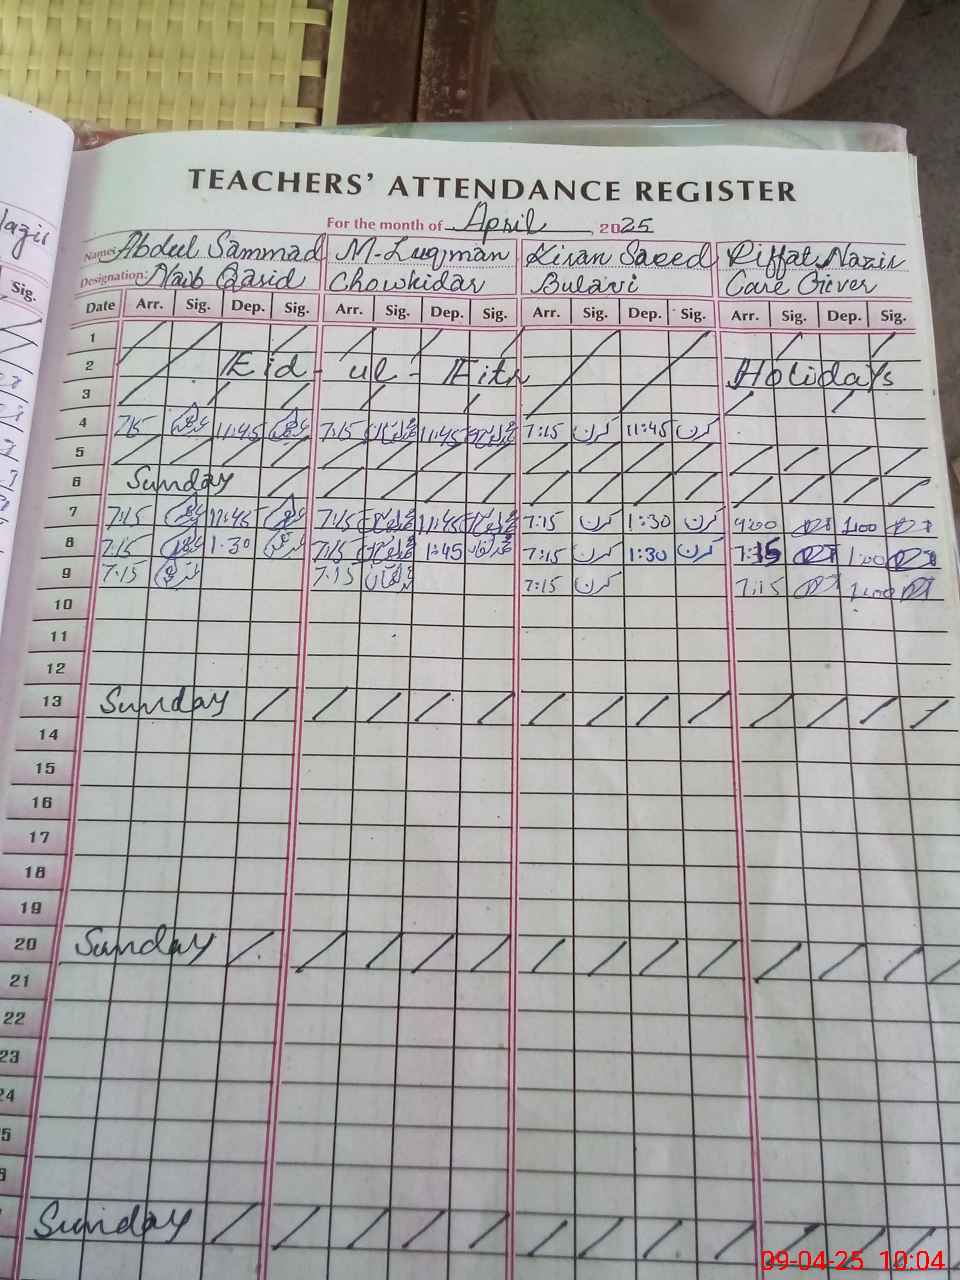 TEACHERS' ATTENDANCE REGISTER
For the month of April 2025
Name: Abdul Sammad M-Luqman Kiran Saeed Riffat Nazir
Designation: Naib Qasid Chowkidar Bulavi Care Giever
Sig.
Date Arr. Sig. Dep. Sig. Arr. Sig. Dep. Sig. Arr. Sig. Dep. Sig. Arr. Sig. Dep. Sig.
1
2 Eid - ul - Fitr Holidays
3
4 7:15 11:45 7:15 11:45 7:15 کرن 11:45 کرن
5
6 Sunday
7 7:15 11:45 7:15 11:45 7:15 کرن 1:30 کرن 9:00 1:00
8 7:15 1:30 7:15 1:45 7:15 کرن 1:30 کرن 7:15 1:00
9 7:15 7:15 7:15 کرن 7:15 1:00
10
11
12
13 Sunday
14
15
16
17
18
19
20 Sunday
21
22
23
24
Sunday
09-04-25 10:04